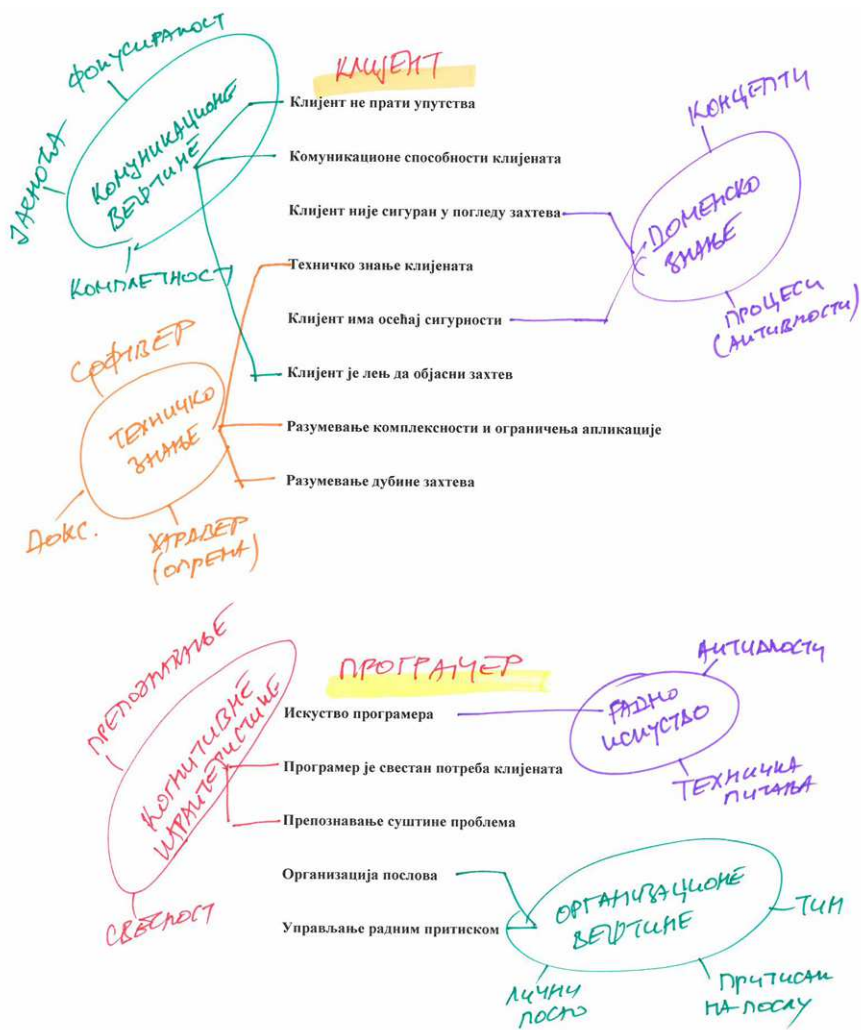 КЛИЈЕНТ
ФОКУСИРАНОСТ
ЈАСНОЋА
КОМУНИКАЦИОНЕ
ВЕШТИНЕ
КОМПЛЕТНОСТ
Клијент не прати упутства
Комуникационе способности клијената
Клијент није сигуран у погледу захтева
Техничко знање клијената
Клијент има осећај сигурности
Клијент је лењ да објасни захтев
Разумевање комплексности и ограничења апликације
Разумевање дубине захтева
КОНЦЕПТИ
ДОМЕНСКО
ЗНАЊЕ
ПРОЦЕСИ
(АКТИВНОСТИ)
СОФТВЕР
ТЕХНИЧКО
ЗНАЊЕ
ДОКС.
ХАРДВЕР
(ОПРЕМА)
ПРОГРАМЕР
ПРЕПОЗНАВАЊЕ
КОГНИТИВНЕ
КАРАКТЕРИСТИКЕ
СВЕСНОСТ
Искуство програмера
Програмер је свестан потреба клијената
Препознавање суштине проблема
Организација послова
Управљање радним притиском
АКТИВНОСТИ
РАДНО
ИСКУСТВО
ТЕХНИЧКА
ПИТАЊА
ОРГАНИЗАЦИОНЕ
ВЕШТИНЕ
ТИМ
ЛИЧНИ
ПОСАО
ПРИТИСАК
НА ПОСЛУ